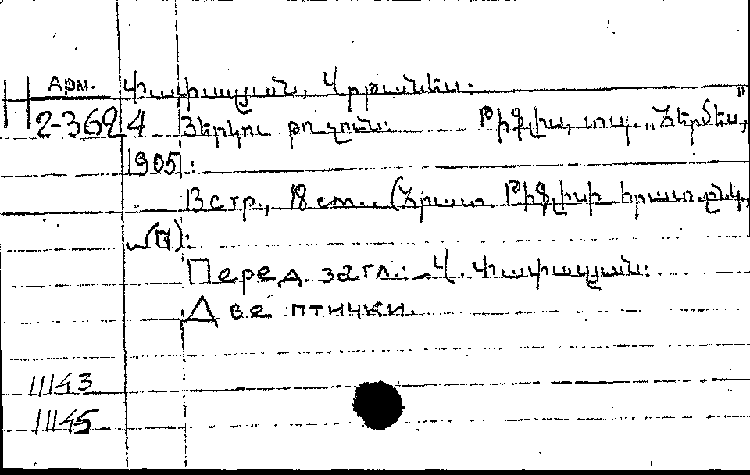 Арм. Փափազյան, Վրթանես։
Н 2-36924 Երկու թռչուն։ Թիֆլիս, տպ. „Հերմես",
1905։
13 стр., 18 см. (Հրատ. Թիֆլիսի հրատ. ընկ.
Перед. загл.: Վ. Փափազյան։
Две птички.
11143
11145